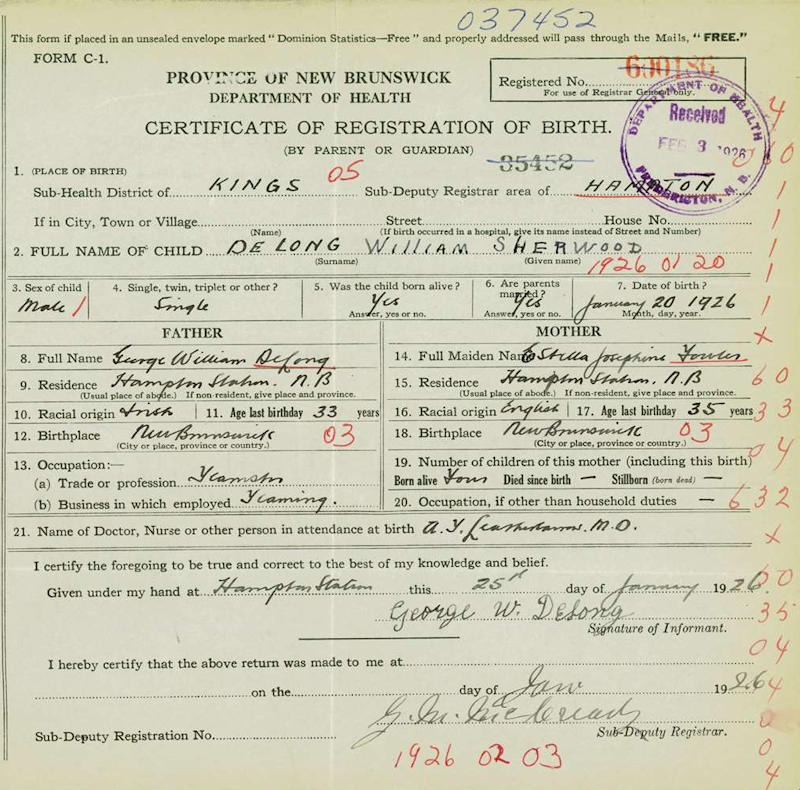 037452
This form if placed in an unsealed envelope marked "Dominion Statistics—Free" and properly addressed will pass through the Mails, "FREE."
FORM C-1.
PROVINCE OF NEW BRUNSWICK
DEPARTMENT OF HEALTH
Registered No. 600186
For use of Registrar General only.
DEPARTMENT OF HEALTH
Received
FEB 3 1926
FREDERICTON, N. B.
CERTIFICATE OF REGISTRATION OF BIRTH.
(BY PARENT OR GUARDIAN)
35452
1. (PLACE OF BIRTH)
Sub-Health District of KINGS 05 Sub-Deputy Registrar area of HAMPTON
If in City, Town or Village Street House No.
(Name) (If birth occurred in a hospital, give its name instead of Street and Number)
2. FULL NAME OF CHILD DELONG WILLIAM SHERWOOD
(Surname) (Given name) 1926 01 20
3. Sex of child 4. Single, twin, triplet or other? 5. Was the child born alive? 6. Are parents married? 7. Date of birth?
Male 1 Single Yes Yes January 20 1926
Answer, yes or no. Answer, yes or no. Month, day, year.
FATHER MOTHER
8. Full Name George William DeLong 14. Full Maiden Name Estella Josephine Fowler
9. Residence Hampton Station. N.B 15. Residence Hampton Station. N.B
(Usual place of abode.) If non-resident, give place and province. (Usual place of abode.) If non-resident, give place and province.
10. Racial origin Irish 11. Age last birthday 33 years 16. Racial origin English 17. Age last birthday 35 years
12. Birthplace New Brunswick 03 18. Birthplace New Brunswick 03
(City or place, province or country.) (City or place, province or country.)
13. Occupation:— 19. Number of children of this mother (including this birth)
(a) Trade or profession Teamster Born alive Four Died since birth — Stillborn (born dead) —
(b) Business in which employed Teaming. 20. Occupation, if other than household duties —
21. Name of Doctor, Nurse or other person in attendance at birth M.D.
I certify the foregoing to be true and correct to the best of my knowledge and belief.
Given under my hand at Hampton Station this 25th day of January 1926.
George W. DeLong
Signature of Informant.
I hereby certify that the above return was made to me at
on the day of Jan 1926
G. M. McCready
Sub-Deputy Registration No. Sub-Deputy Registrar.
1926 02 03
4
0 10
1
1
1
1
X
60
33
04
632
X
00
35
04
4
0
0
4